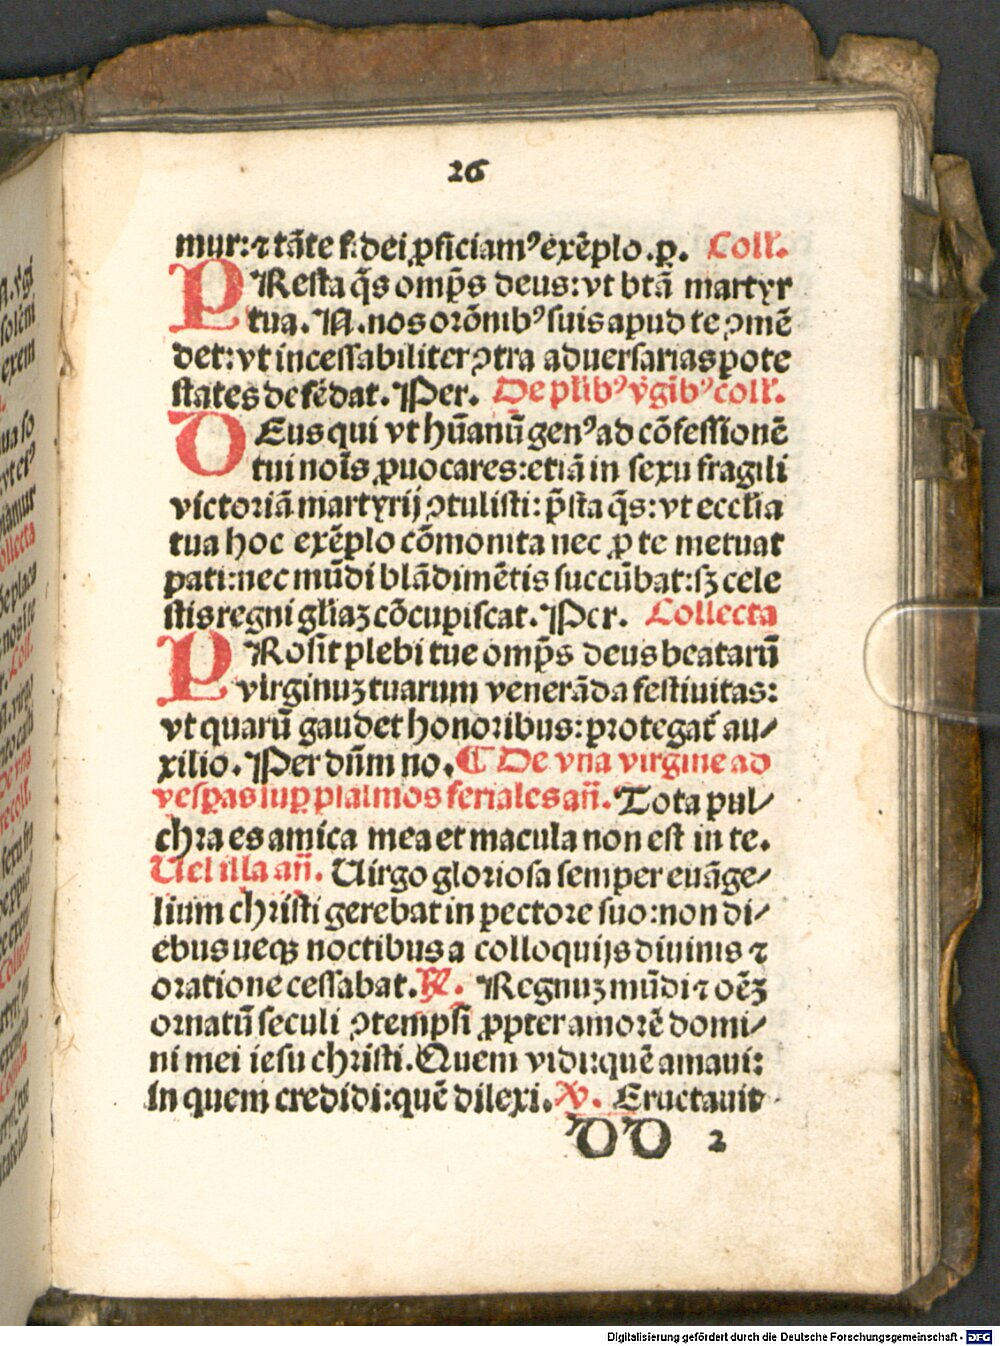 26
mur: ⁊ tāte f. dei ꝓficiamꝰ exēplo. ꝑ. Coll.
PResta q̄s omp̄s deus: vt btā martyr
tua. N. nos orōnibꝰ suis apud te ɔmē
det: vt incessabiliter ɔtra aduersarias pote
states defēdat. Per. De plib' v̄gīb' coll.
DEus qui vt hūanū genꝰ ad cōfessionē
tui noīs ꝓuocares: etiā in sexu fragili
victoriā martyrij ɔtulisti: p̄sta q̄s: vt ecclīa
tua hoc exēplo cōmonita nec ꝓ te metuat
pati: nec mūdi blādimētis succūbat: sꝫ cele
stis regni glīaꝫ cōcupiscat. Per. Collecta
PRosit plebi tue omp̄s deus beatarū
virginuꝫ tuarum venerāda festiuitas:
vt quarū gaudet honoribus: protegat̄ au⸗
xilio. Per dn̄m no. ¶ De vna virgine ad
vesperas suꝑ psalmos feriales añ. Tota pul⸗
chra es amica mea et macula non est in te.
Uel illa añ. Uirgo gloriosa semper euāge⸗
lium christi gerebat in pectore suo: non di⸗
ebus neqꝫ noctibus a colloquijs diuinis ⁊
oratione cessabat. ℟. Regnuꝫ mūdi ⁊ oēꝫ
ornatū seculi ɔtempsi ꝓpter amorē domi⸗
ni mei iesu christi. Quem vidi: quē amaui:
in quem credidi: quē dilexi. ℣. Eructauit
DD 2
Digitalisierung gefördert durch die Deutsche Forschungsgemeinschaft - DFG